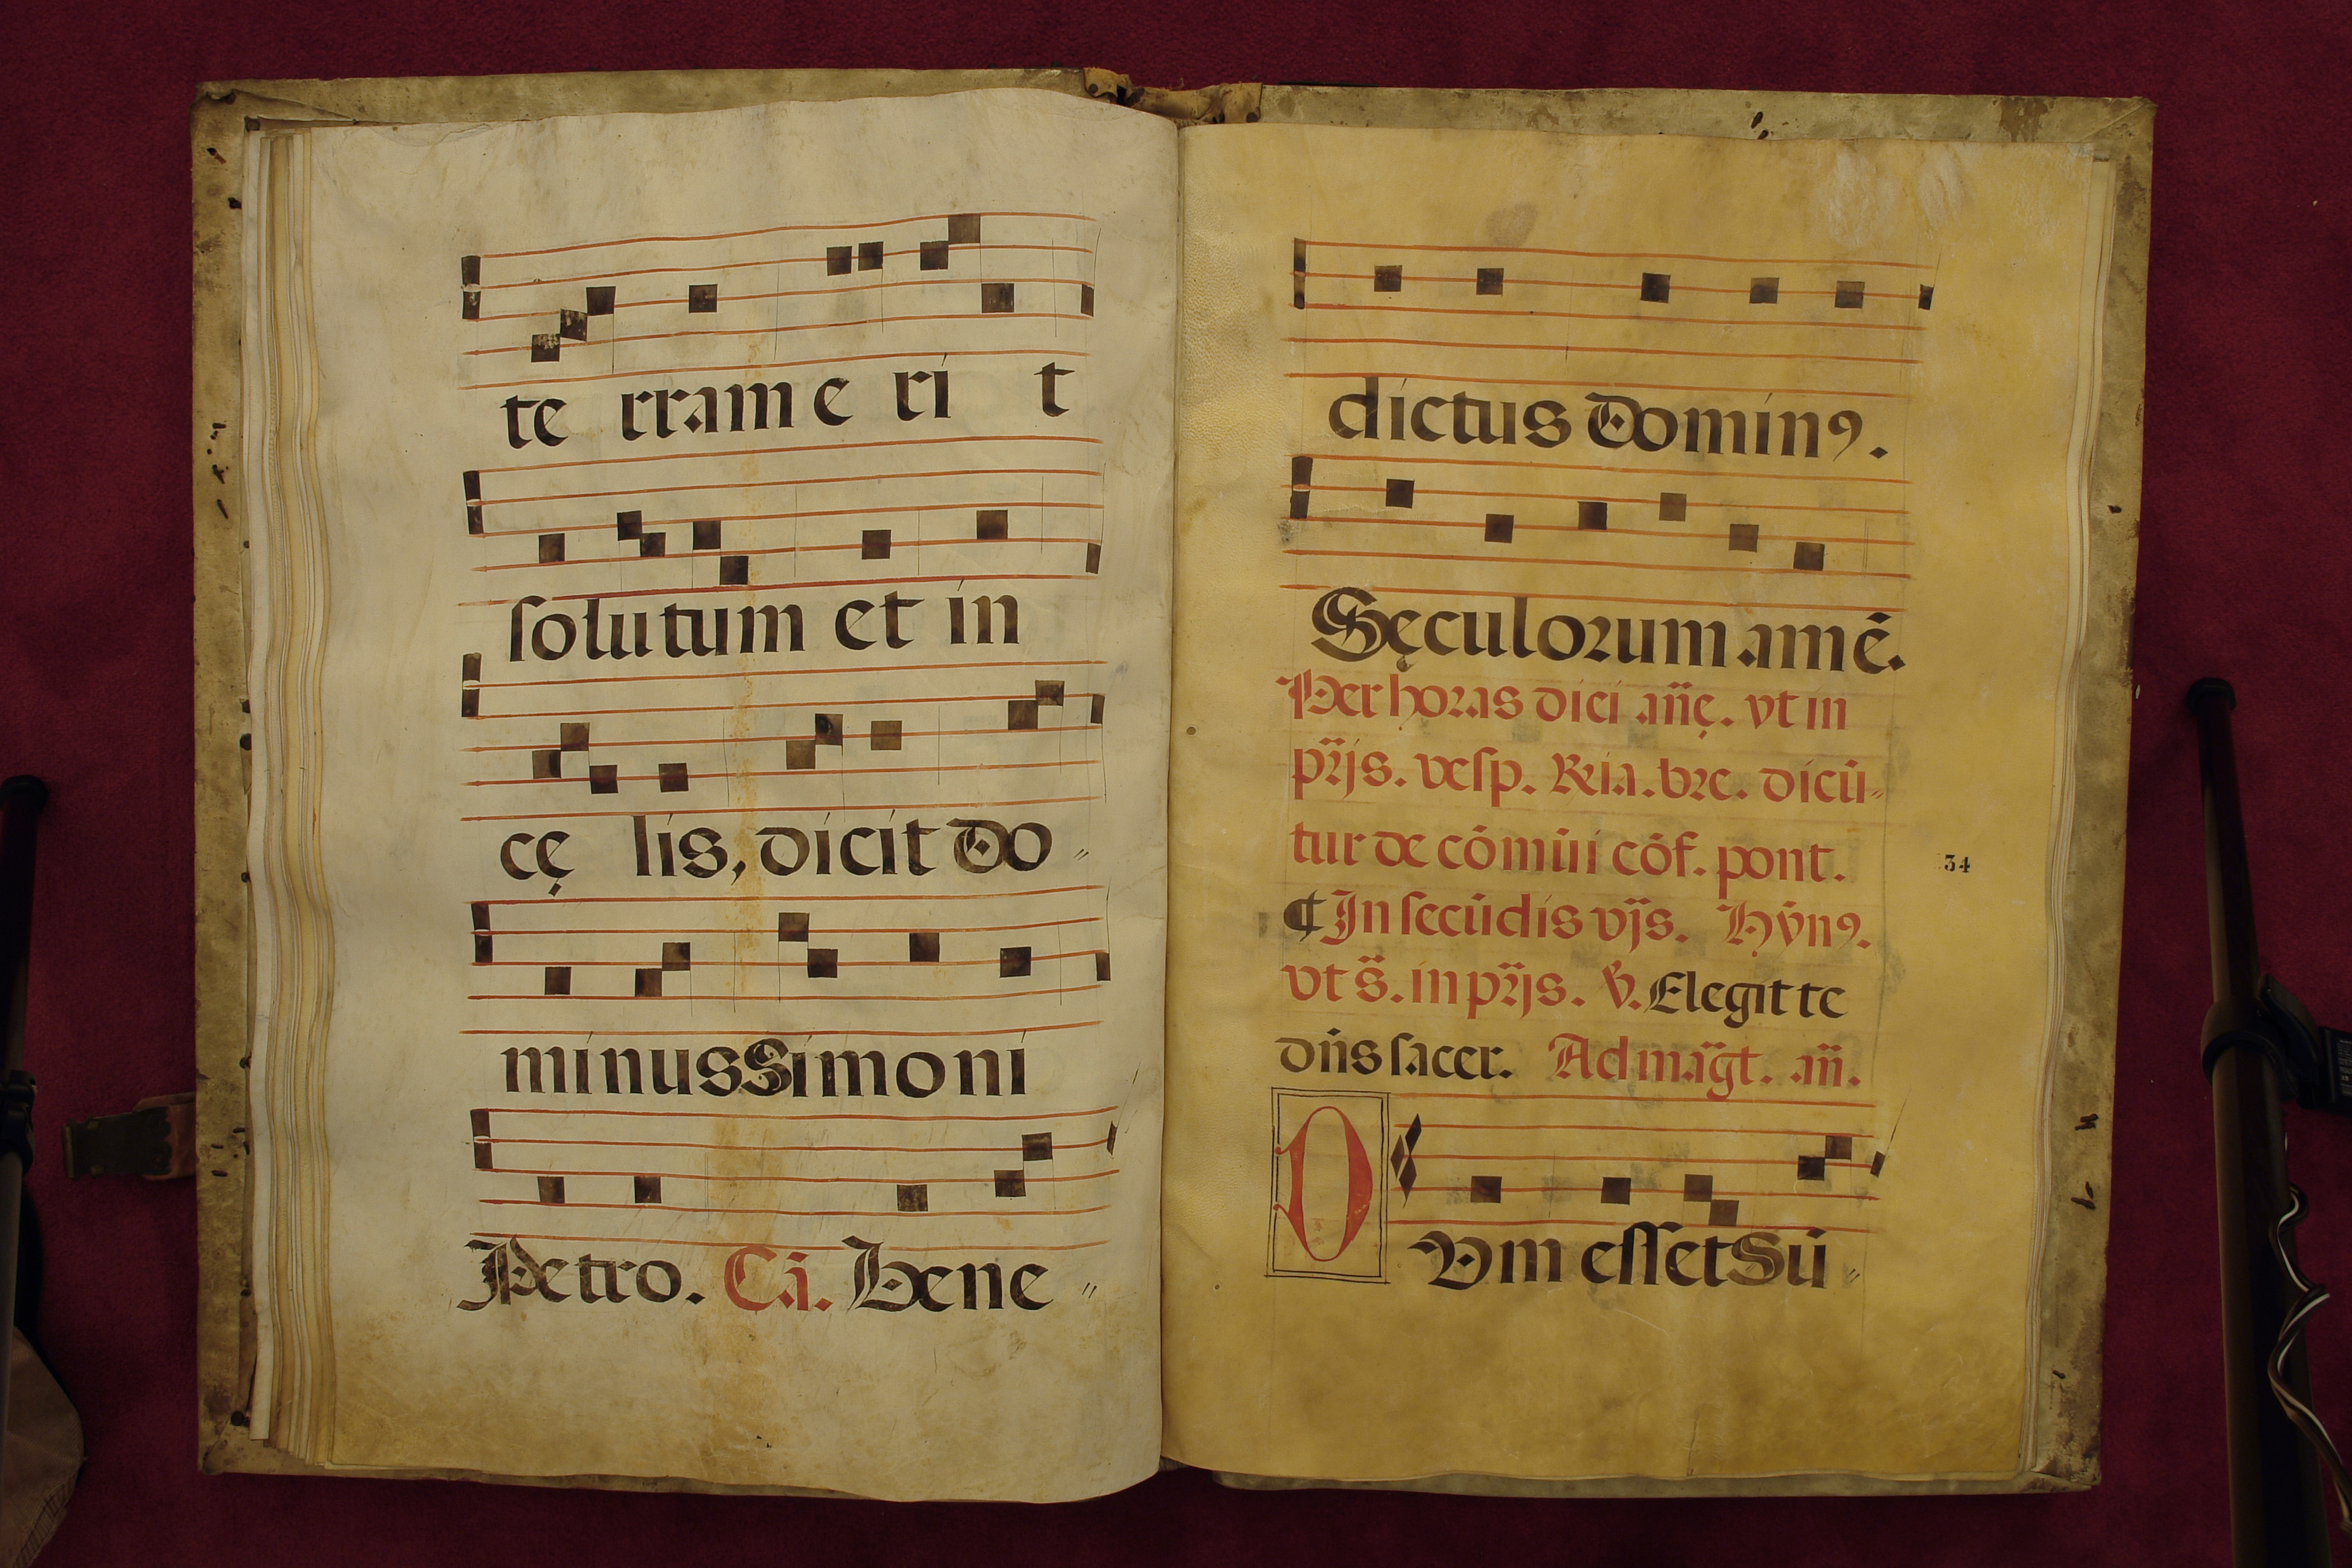 te rram e ri t
solutum et in
cę lis, dicit Do
minus Simoni
Petro. Cā. Bene
dictus Dominꝰ.
Sęculorum amē.
Per horas dici añę. vt in
pr̃ijs. vesp. Rͥa. bre. dicū-
tur de cōmūi cōf. pont.
¶ In secūdis vijs. Hỹnꝰ.
vt s̃. in pr̃ijs. ℣. Elegit te
dñs sacer. Ad mag̃t. añ.
34
DVm esset Sū